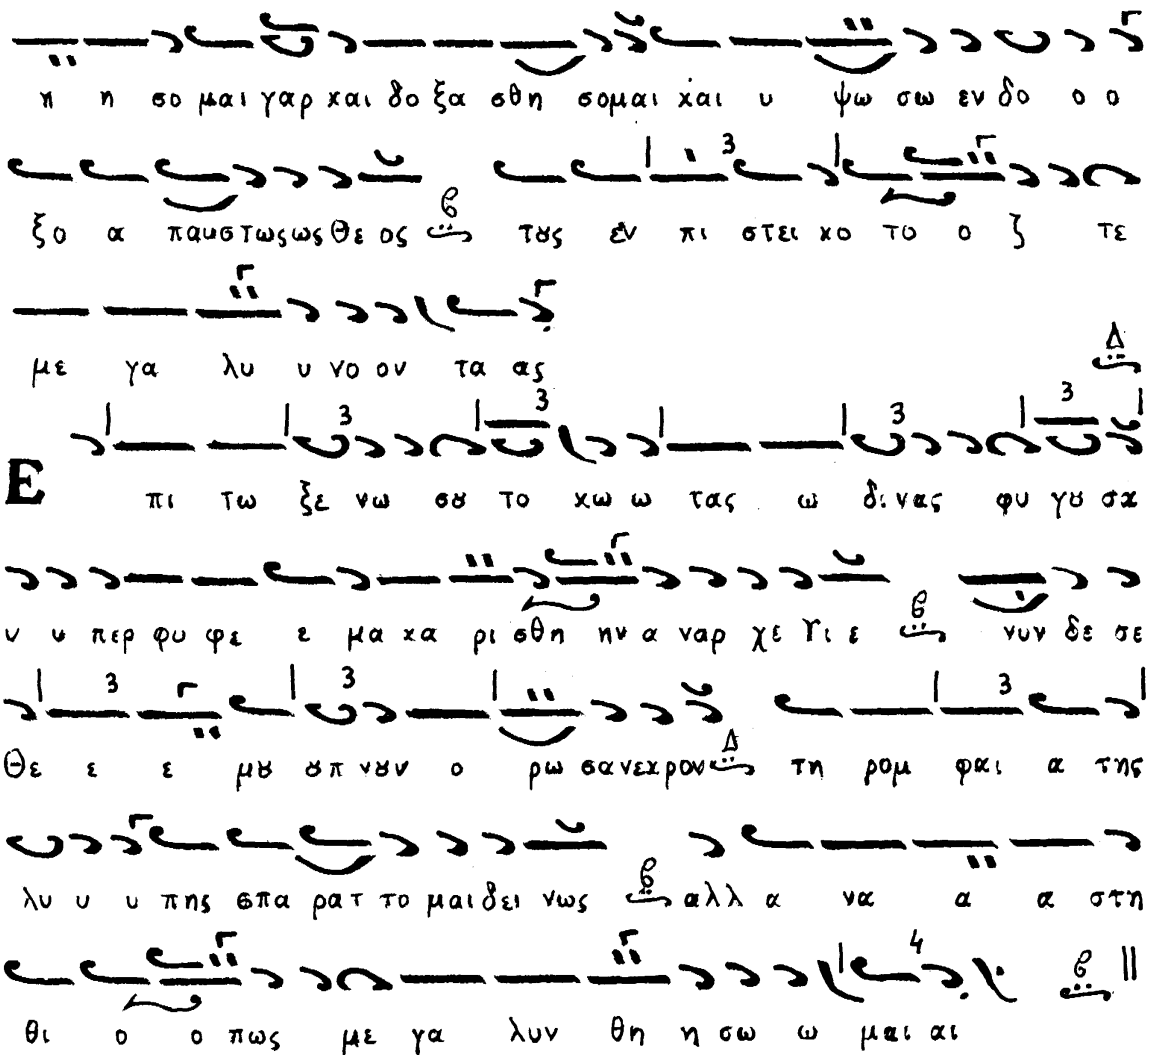 η η σο μαι γαρ και δο ξα σθη σομαι και υ ψω σω εν δο ο ο
ξο α παυστως ως Θε ος τȣς εν πι στει κο το ο ζ τε
με γα λυ υ νο ον τα ας
Ε πι τω ξε νω σȣ το κω ω τας ω δι νας φυ γȣ σα
υ υ περ φυ φε ε μα κα ρι σθη ην α ναρ χε Υι ε νυν δε σε
Θε ε ε μȣ ȣπ νȣν ο ρω σα νεκρον τη ρομ φαι α της
λυ υ υ πης σπα ρατ το μαι δει νως αλλ α να α α στη
θι ο ο πως με γα λυν θη η σω ω μαι αι